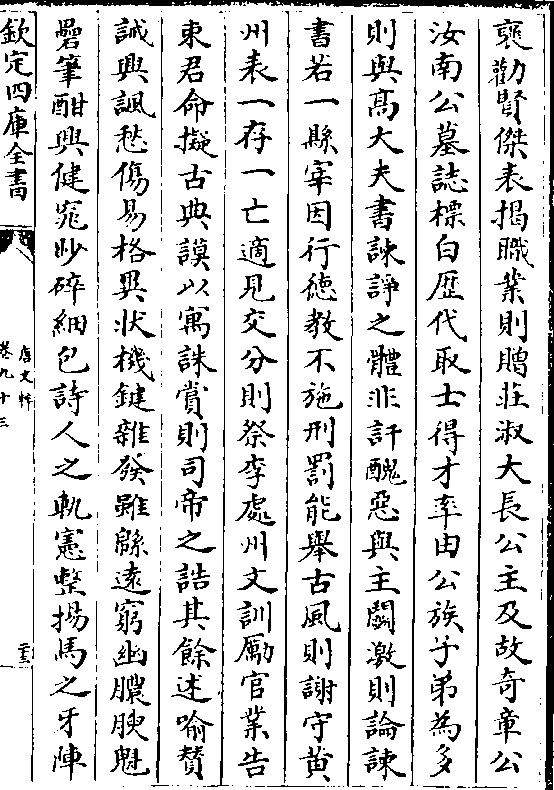 褒勸賢傑表揭職業則贈莊淑大長公主及故奇章公
汝南公墓誌標白歷代取士得才率由公族子弟為多
則與高大夫書諫諍之體非訐醜惡與主鬭激則論諫
書若一縣宰因行德教不施刑罰能舉古風則謝守黄
州表一存一亡適見交分則祭李處州文訓勵官業告
束君命擬古典謨以寓誅賞則司帝之誥其餘述喻贊
誡興諷愁傷易格異狀機鍵雜發雖緜遠窮幽膿腴魁
礨筆酣興健窕眇碎細包詩人之軌憲整揚馬之牙陣
欽定四庫全書
唐文粹
卷九十三